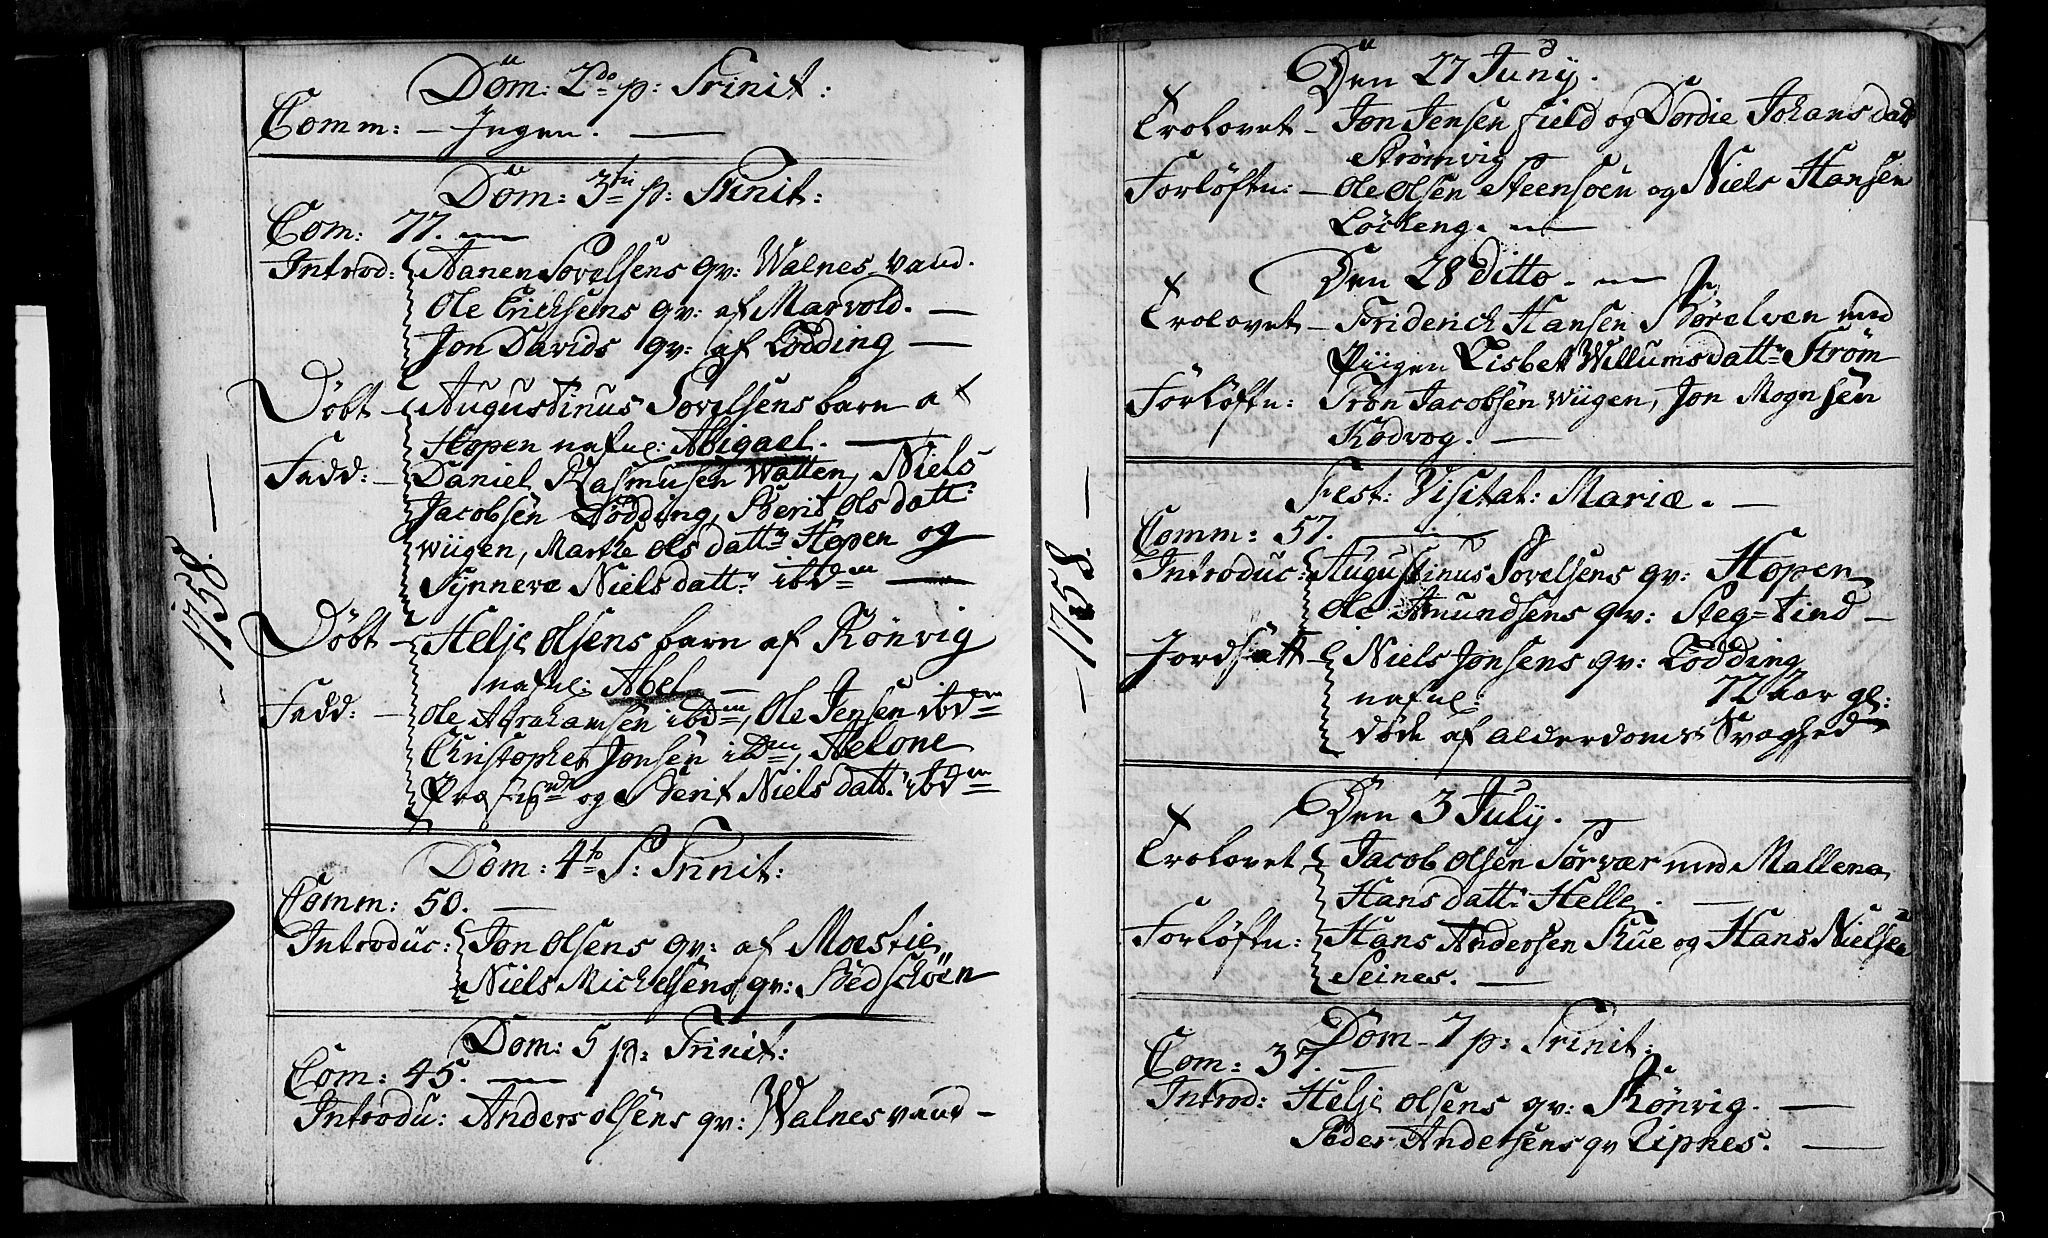 Dom: 2do p: Trinit:
Comm: – Ingen. —
Dom: 3tii p: Trinit:
Com: 77. —
Introd: Aanen Sovelsens qv: Walnes-vand.
Ole Ericksens qv: af Marvold. —
Jon Davids qv: af Lödding —
Döbt – Augustinus Sovelsens barn af
Hopen nafnl: Abigael. —
Fadd: – Daniel Rasmusen Watten, Niels
Jacobsen Lödding, Berit Olsdatt:
wiigen, Marthe Olsdattr Hopen og
Synneve Nielsdattr ibdm —
1758.
Döbt – Helje Olsens barn af Rönvig
nafnl: Abel —
Fadd: – Ole Abrahamsen ibdm, Ole Jensen ibdm
Christopher Jonsen ibdm, Helone
og Berit Nielsdatt: ibdm
Dom: 4to P: Trinit:
Comm: 50. —
Introduc: Jon Olsens qv: af Moestie
Niels Mickelsens qv: Bedschöen
Dom: 5 p: Trinit:
Com: 45. —
Introdu: Anders Olsens qv: Walnesvand –
Den 27 Juny.
Trolovet – Jon Jensen Field og Dordie Johansdatt
Strömvig
Forlöftn: – Ole Olsen Steensoen og Niels Hansen
Löckeng. —
Den 28 ditto. —
Trolovet – Friderich Hansen Börelven med
Piigen Lisbet Willumsdattr Ström
Forlöftn: Tron Jacobsen wiigen, Jon Mognsen
Kodvog. —
Fest: Visitat: Mariæ. —
Comm: 57. —
Introduc: Augustinus Sovelsens qv: Hopen
Ole Amundsens qv: Steg=tind —
1758.
Jordsatt – Niels Jonsens qv: Lödding
nafnl: 72 Aar gl:
döde af alderdoms Svaghed
Den 3 July. —
Trolovet Jacob Olsen Sörvær med Mallena
Hansdatt: Helle. —
Forlöftn: Hans Andersen Skue og Hans Nielsen
Seines. —
Dom – 7 p: Trinit:
Com: 37. —
Introd: Helje Olsens qv: Rönvig. —
Peder Andersens qv Lipnes. —